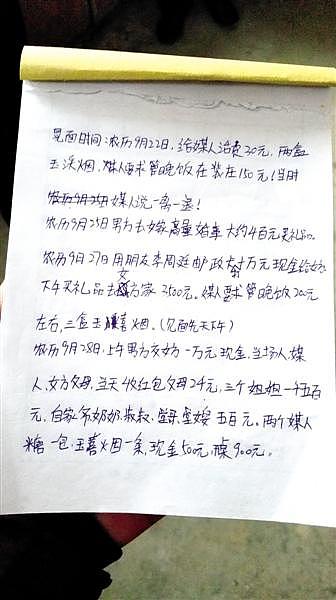 见面时间:农历9月22日,给媒人治费20元,两盒
玉溪烟,媒人要求管晚饭在 庄150元(当时
媒人说一离一退!
农历9月25日男方去 商量婚事大约4百元买礼品。
农历9月27日用朋友李周廷邮政 万元现金给
下午买礼品去女方家3500元。媒人要求管晚饭20元
左右,三盒玉 烟。(见面先天下午)
农历9月28日,上午男方交女方一万元现金,当场人,媒
人,女方父母,当天收红包父母24元,三个姐姐一千五百
元,自家爷奶奶,叔叔, , 五百元。两个媒人
糖一包,玉喜烟一条,现金50元, 900元。